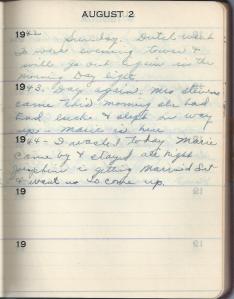 AUGUST 2
1942 Sunday. Dutch went
to work evening tower &
will go out again in the
morning Day light
1943. Day again. Mrs Stevens
came this morning she had
bad luck & slept on way
up - Marie is here
1944 - I washed today. Marie
came by & stayed all night
Josephine is getting Married Sat
& want us to come up.
19
19